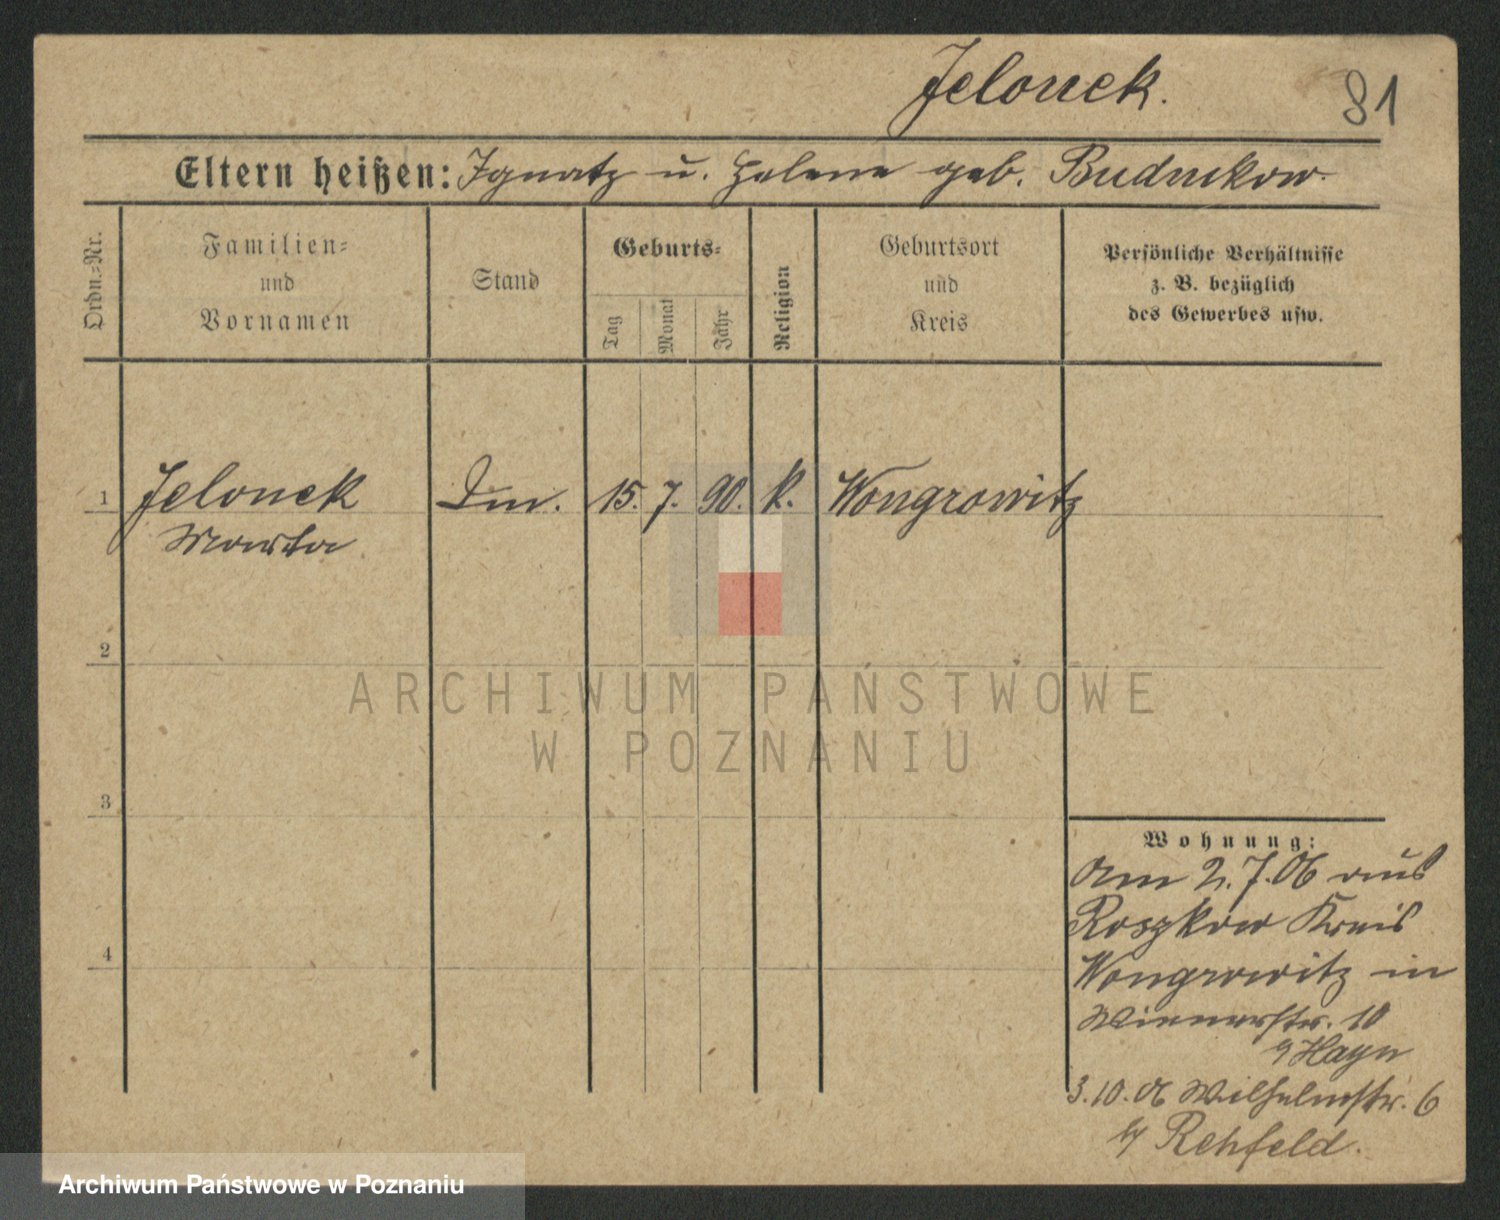 Jelonek.
81
Eltern heißen: Ignatz u. Helene geb. Budnikow.
Ordn.-Nr.
Familien-
und
Vornamen
Stand
Geburts-
Tag
Monat
Jahr
Religion
Geburtsort
und
Kreis
Persönliche Verhältnisse
z. B. bezüglich
des Gewerbes usw.
1 Jelonek Dm. 15. 7. 90. k. Wongrowitz
Marta
2
ARCHIWUM PAŃSTWOWE
W POZNANIU
3
Wohnung:
Am 2.7.06 aus
Roszkow Kreis
4
Wongrowitz in
Wienerstr. 10
Hayn
3.10.06 Wilhelmstr. 6
by Rehfeld.
Archiwum Państwowe w Poznaniu